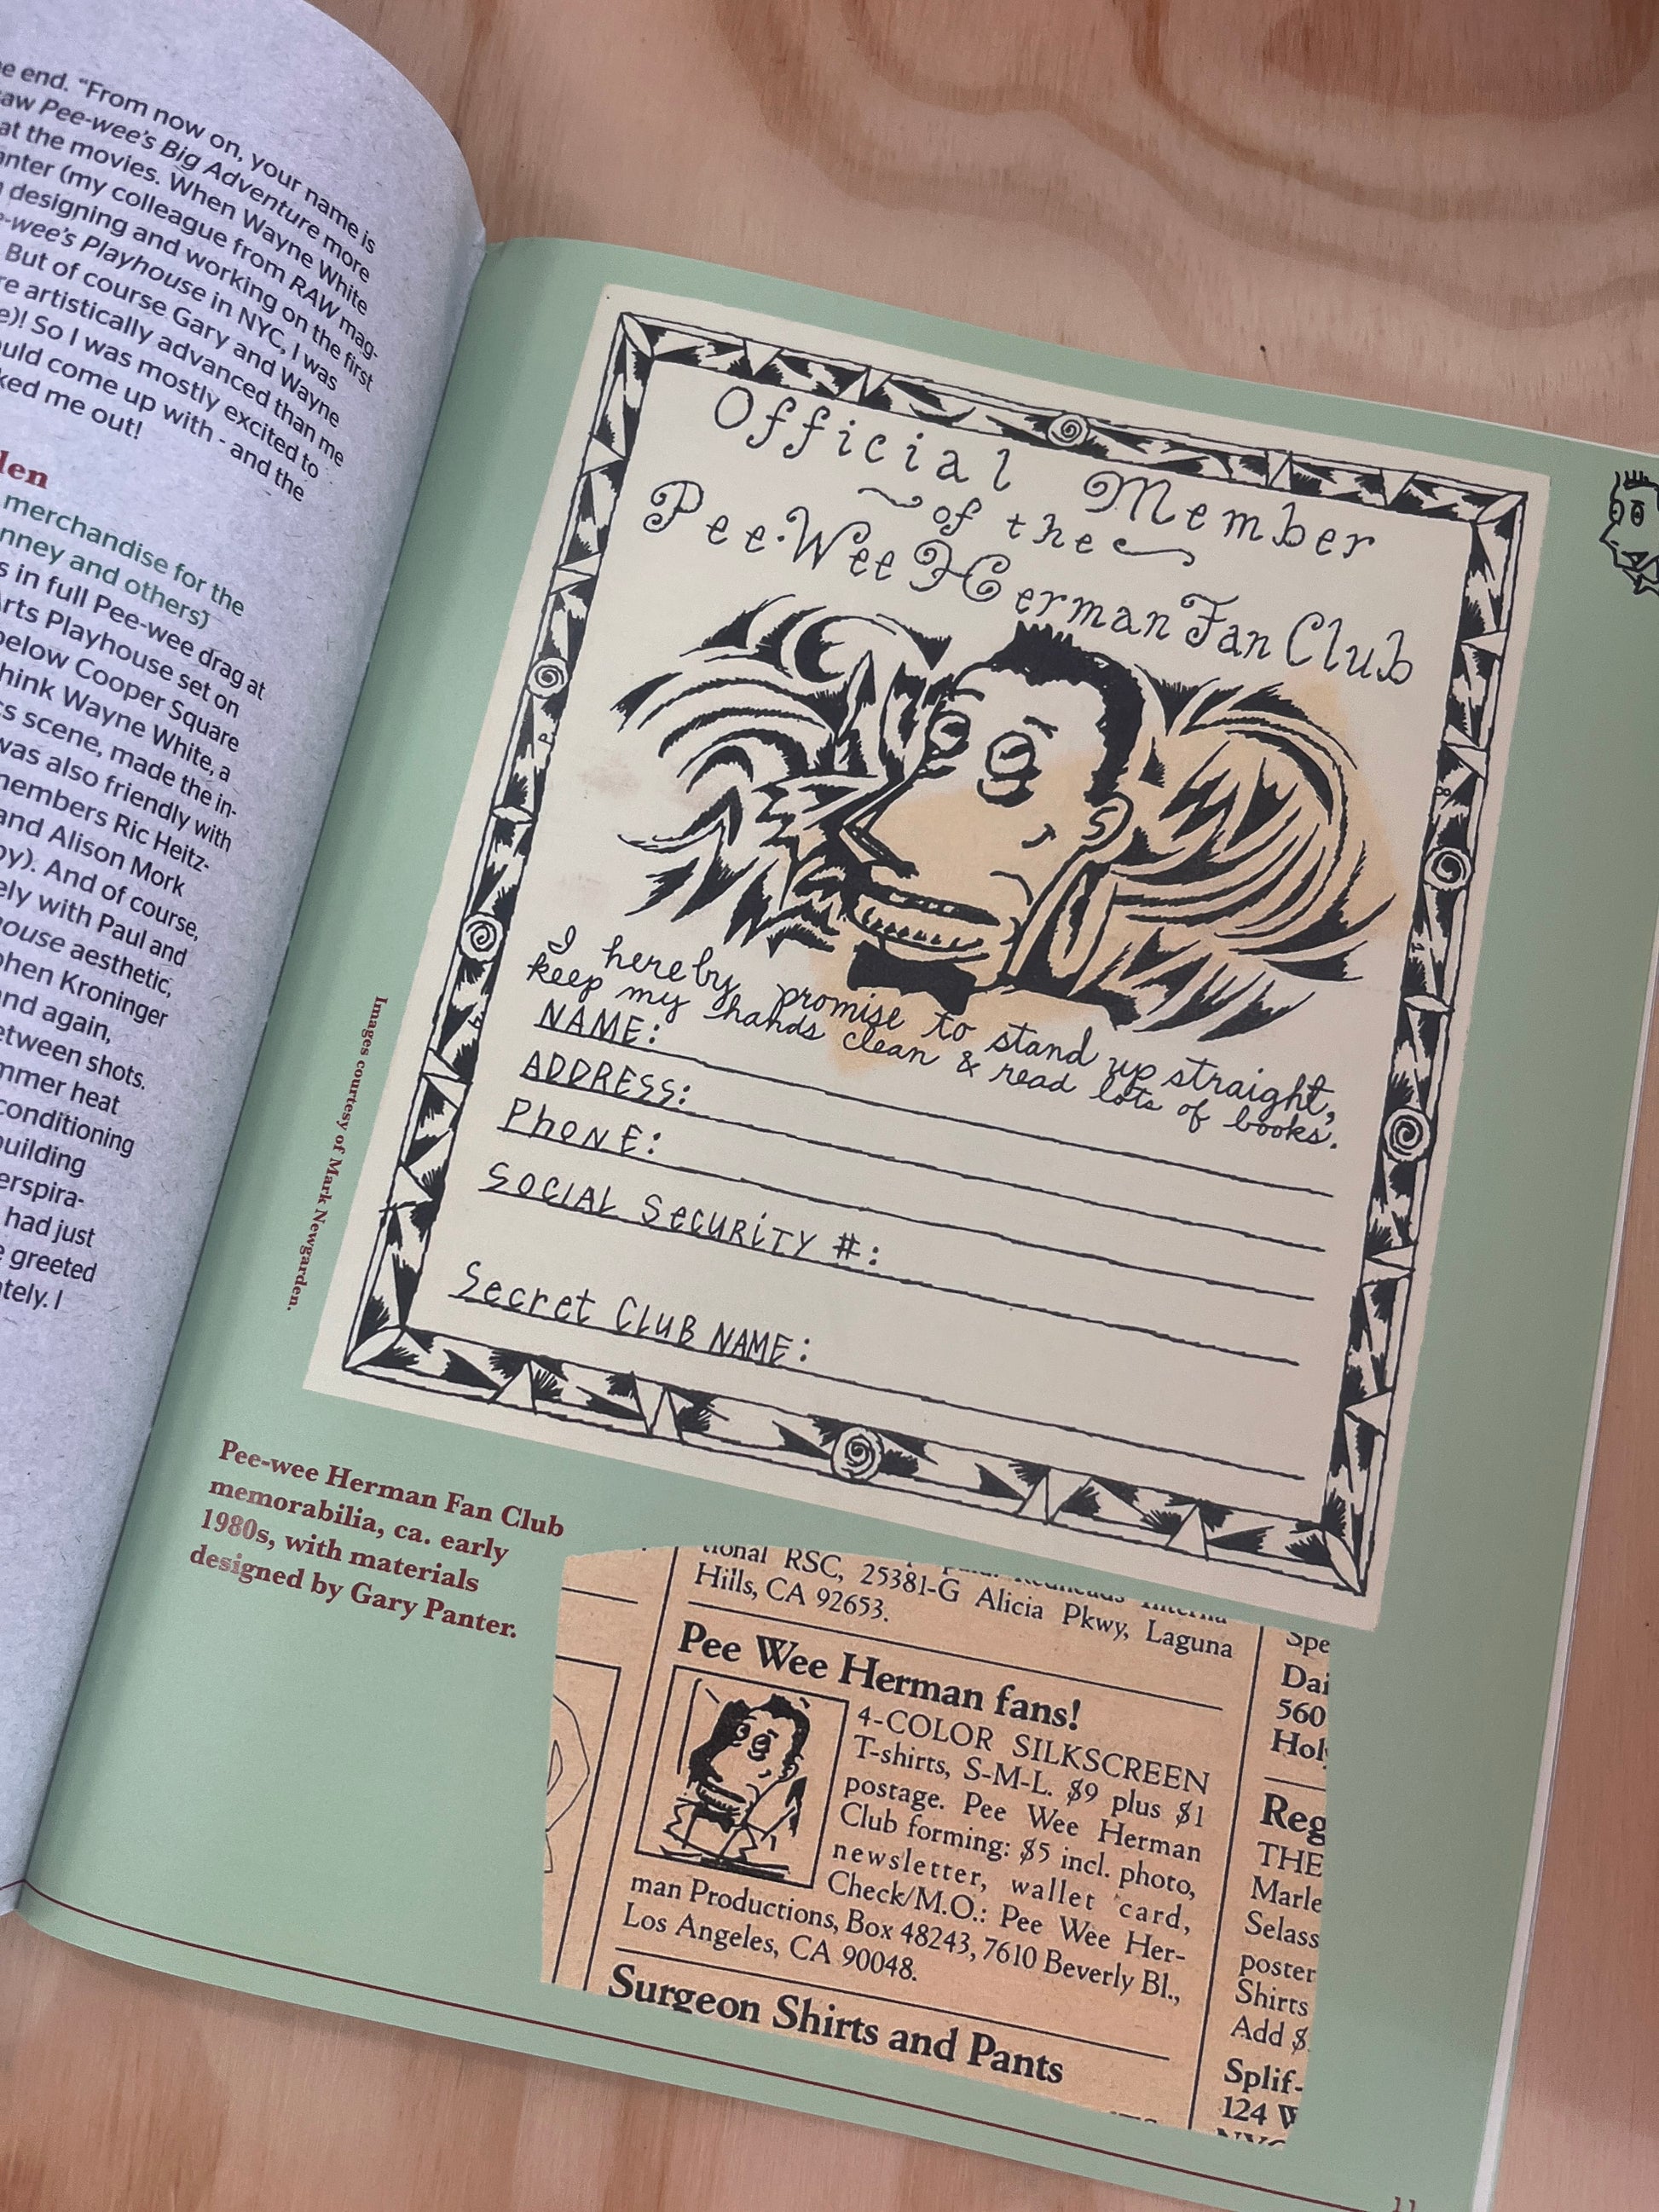 e end. “From now on, your name is
aw Pee-wee’s Big Adventure more
at the movies. When Wayne White
nter (my colleague from RAW mag-
designing and working on the first
e-wee’s Playhouse in NYC, I was
But of course Gary and Wayne
re artistically advanced than me
e)! So I was mostly excited to
uld come up with - and the
ked me out!
len
merchandise for the
nney and others)
s in full Pee-wee drag at
Arts Playhouse set on
below Cooper Square
hink Wayne White, a
cs scene, made the in-
was also friendly with
members Ric Heitz-
and Alison Mork
by). And of course,
ely with Paul and
house aesthetic,
phen Kroninger
and again,
etween shots.
mmer heat
conditioning
building
erspira-
had just
e greeted
ately. I
Images courtesy of Mark Newgarden.
Official Member
of the
Pee-Wee Herman Fan Club
I hereby promise to stand up straight,
keep my hands clean & read lots of books.
NAME:
ADDRESS:
PhoNE:
SOCIAL SECURiTY #:
Secret CLUB NAME:
Pee-wee Herman Fan Club
memorabilia, ca. early
1980s, with materials
designed by Gary Panter.
tional RSC, 25381-G Alicia Pkwy, Laguna
Hills, CA 92653.
Pee Wee Herman fans!
4-COLOR SILKSCREEN
T-shirts, S-M-L. $9 plus $1
postage. Pee Wee Herman
Club forming: $5 incl. photo,
newsletter, wallet card,
Check/M.O.: Pee Wee Her-
man Productions, Box 48243, 7610 Beverly Bl.,
Los Angeles, CA 90048.
Surgeon Shirts and Pants
Spe
Dai
560
Hol
Reg
THE
Marle
Selass
poster
Shirts
Add $
Splif-
124 W
NYC
11